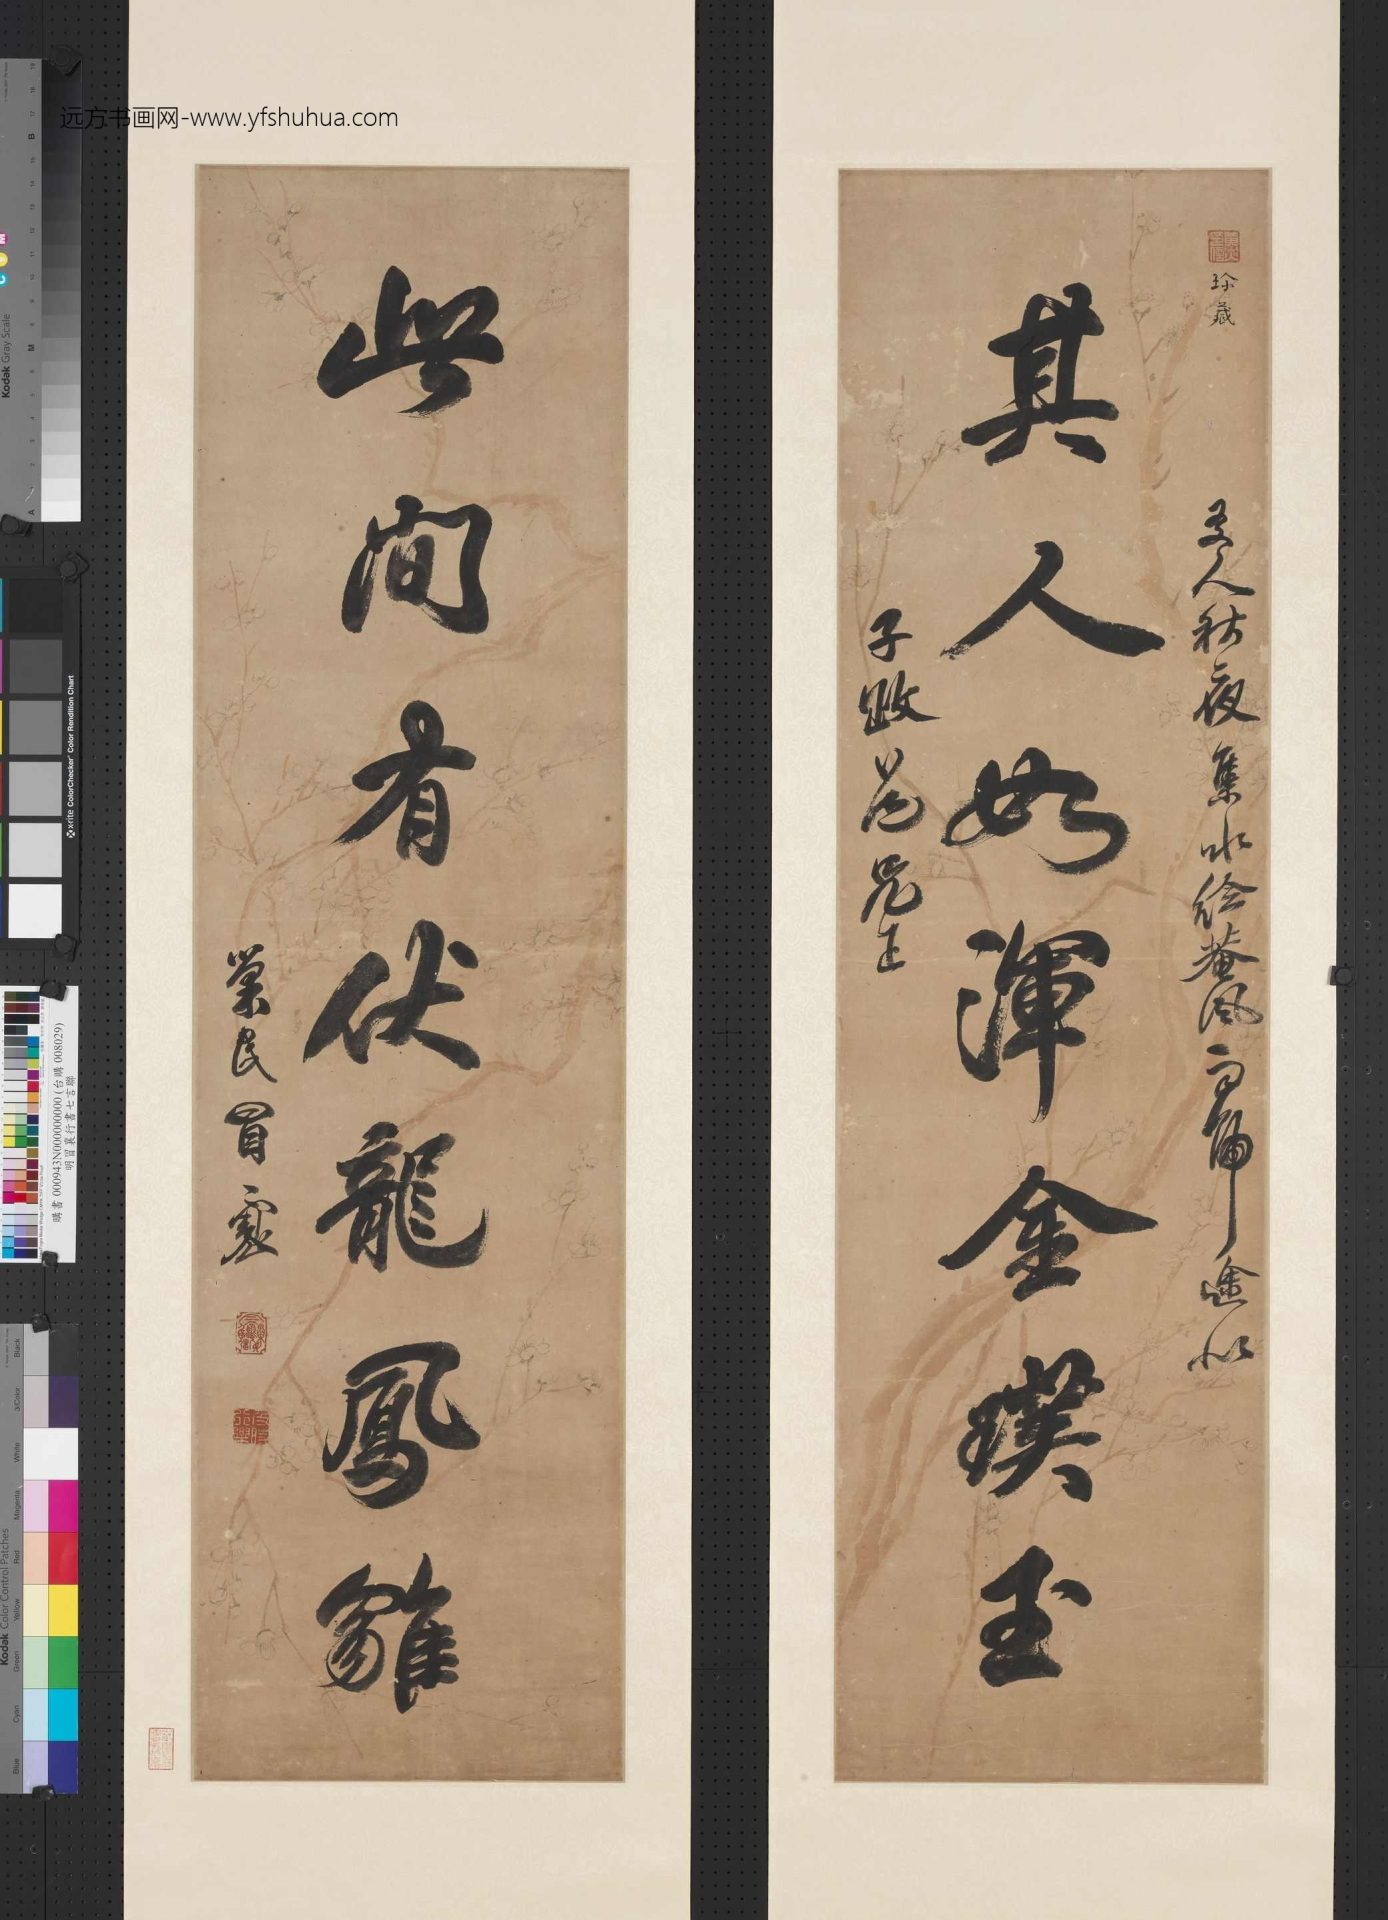 远方书画网-www.yfshuhua.com
珍藏
其人如渾金璞玉
友人秋夜集水繪菴
子
兄正
此間有伏龍鳳雛
巢民冒襄
Kodak Gray Scale
x-rite ColorChecker Color Rendition Chart
購書 000943N000000000 (台購 008029)
明冒襄行書七言聯
Kodak Color Control Patches
Black
3/Color
White
Magenta
Red
Yellow
Green
Cyan
Blue